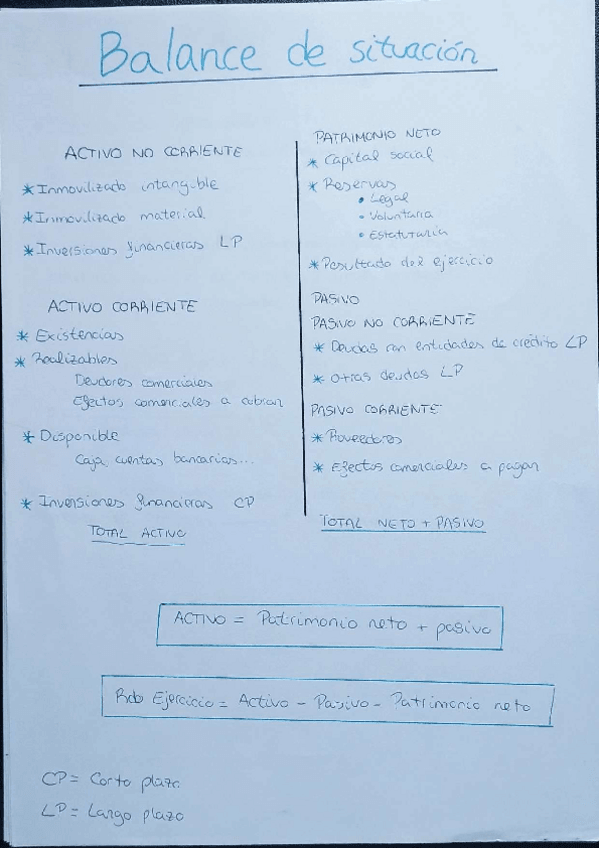 Balance de situación
ACTIVO NO CORRIENTE
* Inmovilizado intangible
* Inmovilizado material
* Inversiones financieras LP
ACTIVO CORRIENTE
* Existencias
* Realizables
Deudores comerciales
Efectos comerciales a cobrar
* Disponible
Caja, cuentas bancarias...
* Inversiones financieras CP
TOTAL ACTIVO
PATRIMONIO NETO
* Capital social
* Reservas
• Legal
• Voluntaria
• Estatutaria
* Resultado del ejercicio
PASIVO
PASIVO NO CORRIENTE
* Deudas con entidades de crédito LP
* Otras deudas LP
PASIVO CORRIENTE
* Proveedores
* Efectos comerciales a pagar
TOTAL NETO + PASIVO
ACTIVO = Patrimonio neto + pasivo
Rdo Ejercicio = Activo - Pasivo - Patrimonio neto
CP = Corto plazo
LP = Largo plazo